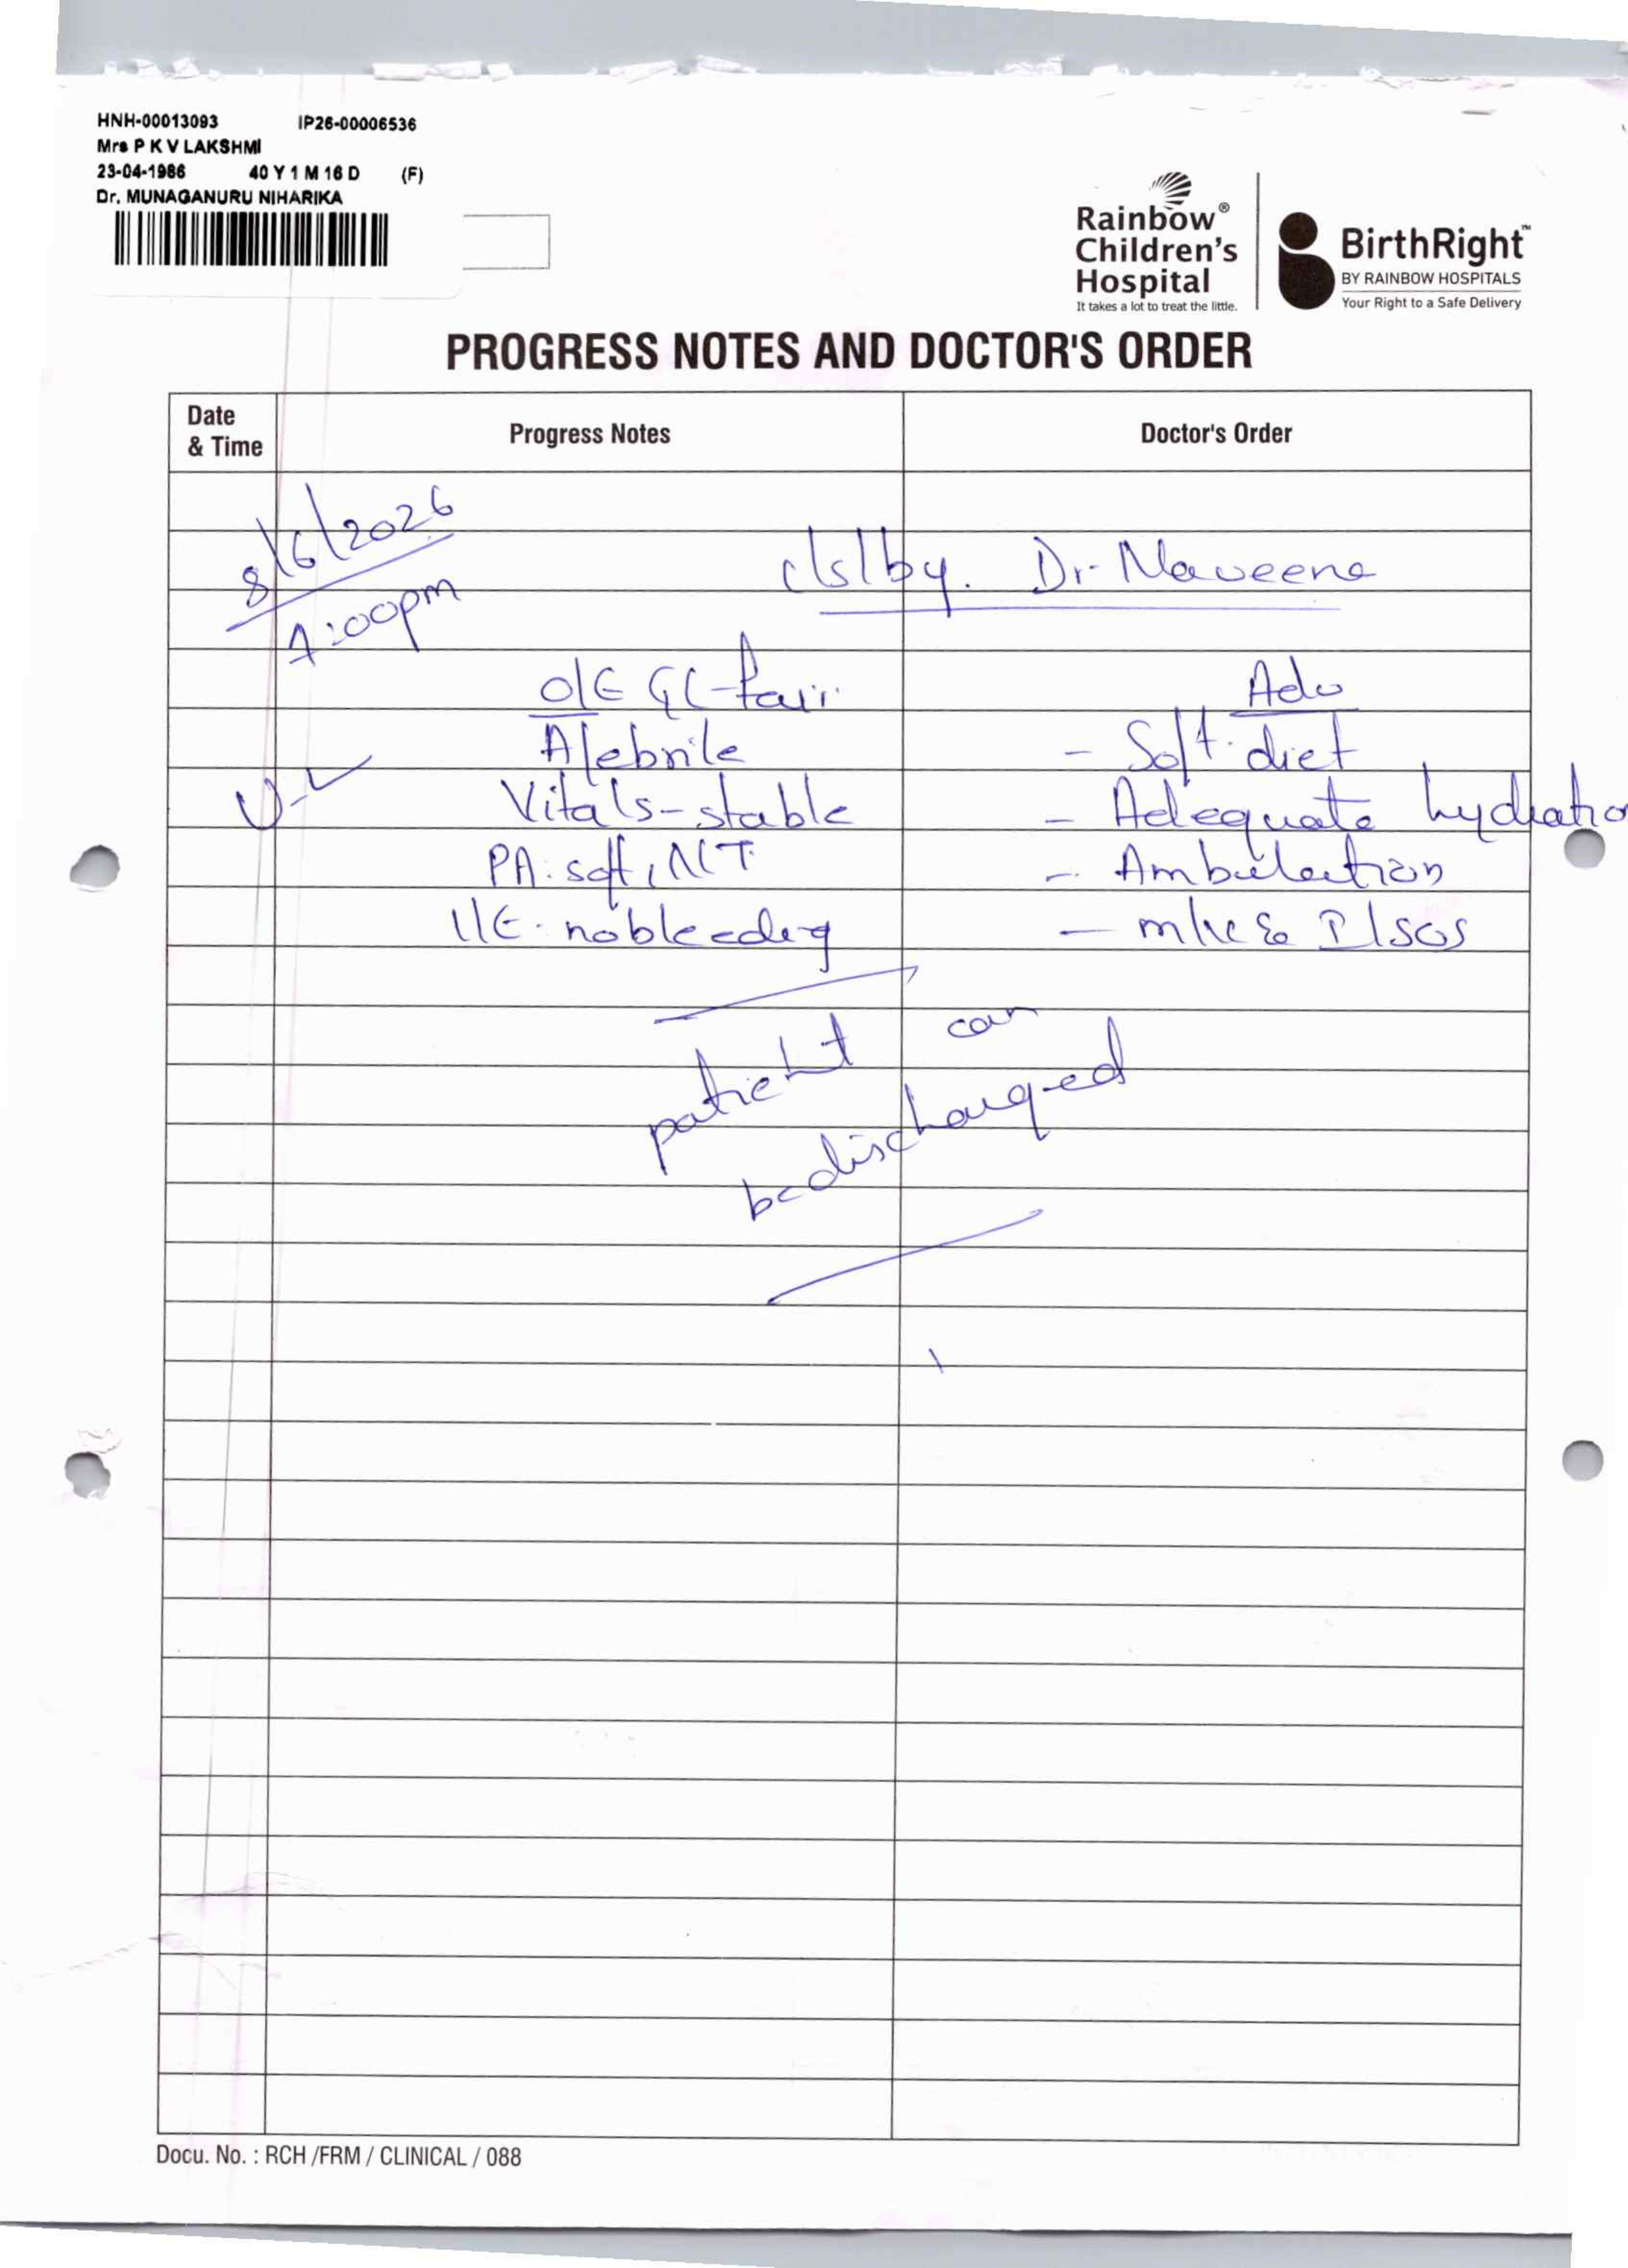 HNH-00013093 IP26-00006536
Mrs P K V LAKSHMI
23-04-1986 40 Y 1 M 16 D (F)
Dr. MUNAGANURU NIHARIKA
Rainbow®
Children's
Hospital
It takes a lot to treat the little.
BirthRight™
BY RAINBOW HOSPITALS
Your Right to a Safe Delivery
PROGRESS NOTES AND DOCTOR'S ORDER
Date
& Time
Progress Notes
Doctor's Order
8/6/2026
4:00pm
c/s/by. Dr. Naveena
O/E GC-fair
Afebrile
Vitals-stable
PA: soft, NT
L/E. no bleeding
U-✓
Adv
- Soft diet
- Adequate hydratio
- Ambulation
- I/SOS
patient can
be discharged
Docu. No. : RCH /FRM / CLINICAL / 088